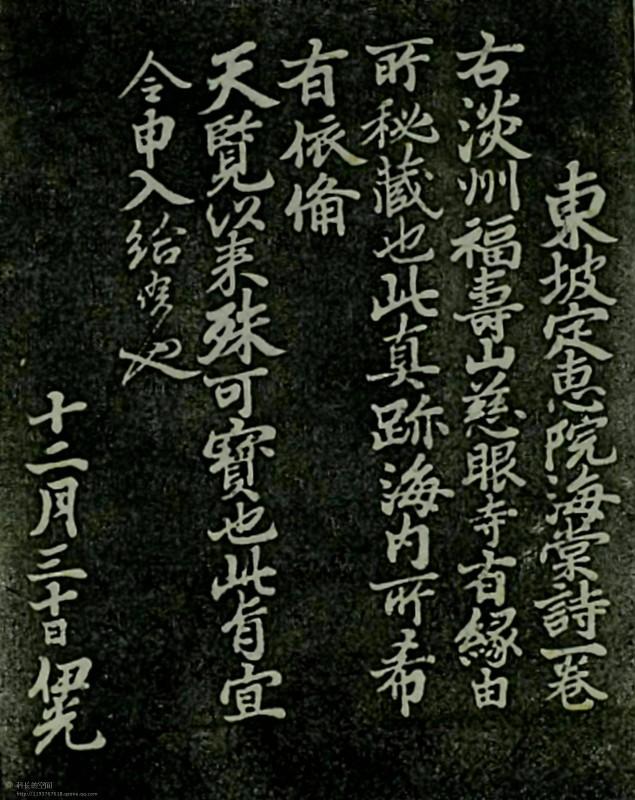 東坡定恵院海棠詩一巻
右淡州福壽山慈眼寺有縁由
所秘蔵也此真跡海内所希
有依備
天覧以来殊可寶也此旨宜
令申入給候也
十二月三十日 伊光
科长的空间